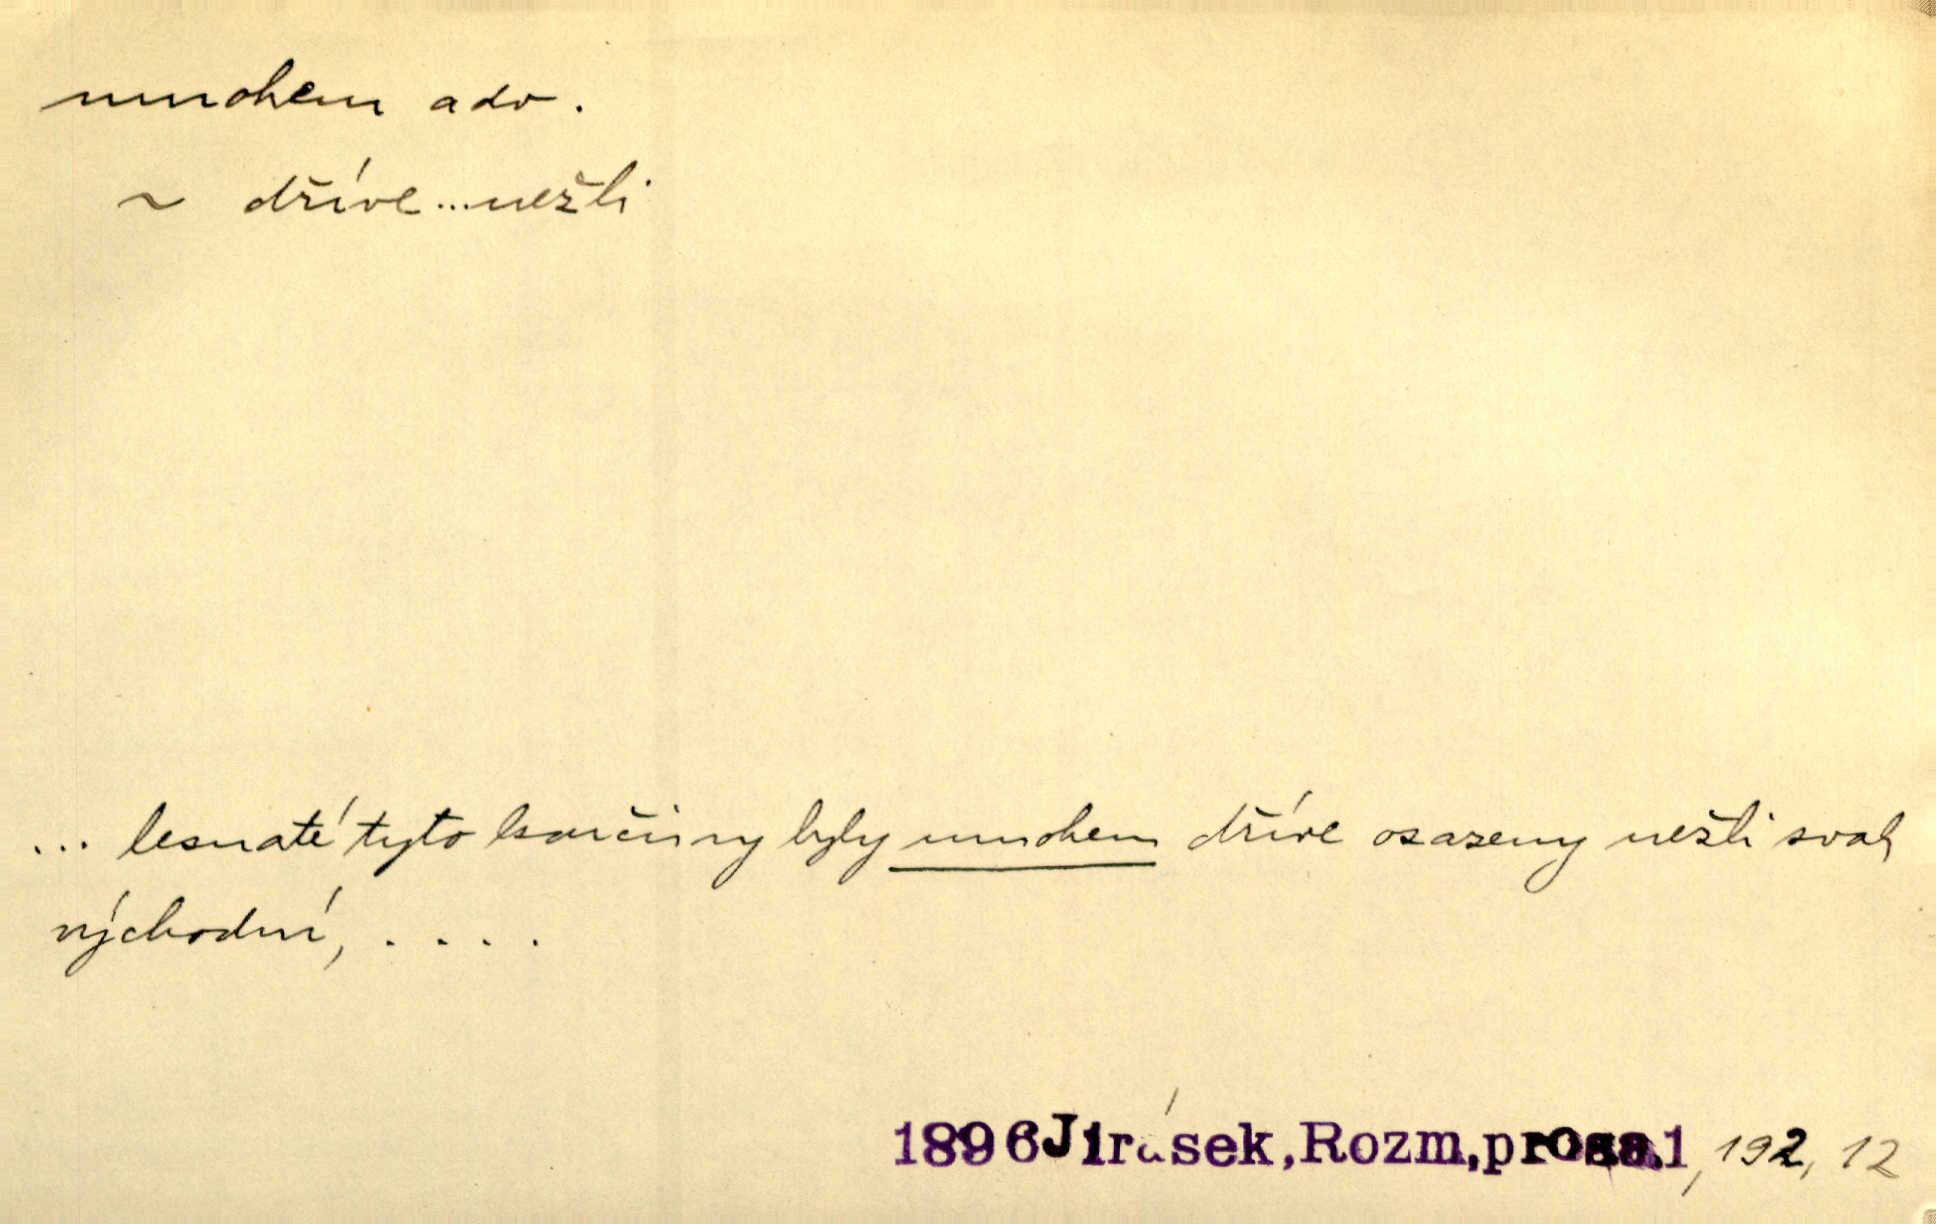 mnohem adv.
~ dříve...nežli
... lesnaté tyto končiny byly mnohem dříve osazeny nežli svah
východní, ....
1896 Jirásek, Rozm, prosa.1, 192, 12